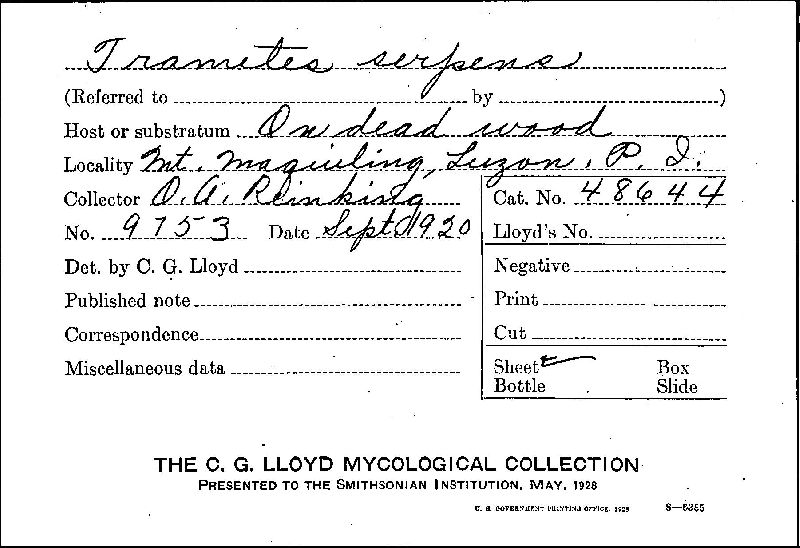 Trametes serpens
(Referred to by )
Host or substratum On dead wood
Locality Mt. Maquiling, Luzon, P. I.
Collector O. A. Reinking
Cat. No. 48644
No. 9753 Date Sept 1920
Lloyd's No.
Det. by C. G. Lloyd
Negative
Published note
Print
Correspondence
Cut
Miscellaneous data
Sheet Box
Bottle Slide
THE C. G. LLOYD MYCOLOGICAL COLLECTION
PRESENTED TO THE SMITHSONIAN INSTITUTION, MAY, 1928
U. S. GOVERNMENT PRINTING OFFICE, 1928 8—6355